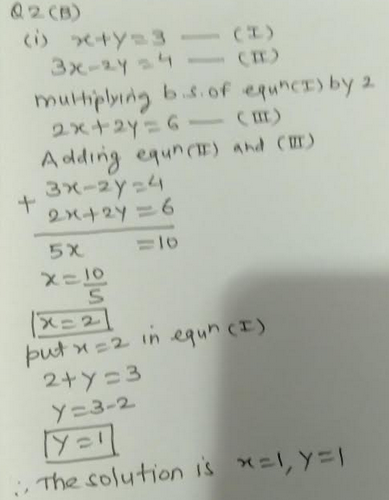 Q2(B)
(i) x+y=3 — (I)
3x-2y=4 — (II)
multiplying b.s. of equn(I) by 2
2x+2y=6 — (III)
Adding equn(II) and (III)
3x-2y=4
+ 2x+2y=6
5x =10
x=10/5
x=2
put x=2 in equn(I)
2+y=3
y=3-2
y=1
∴ The solution is x=1, y=1